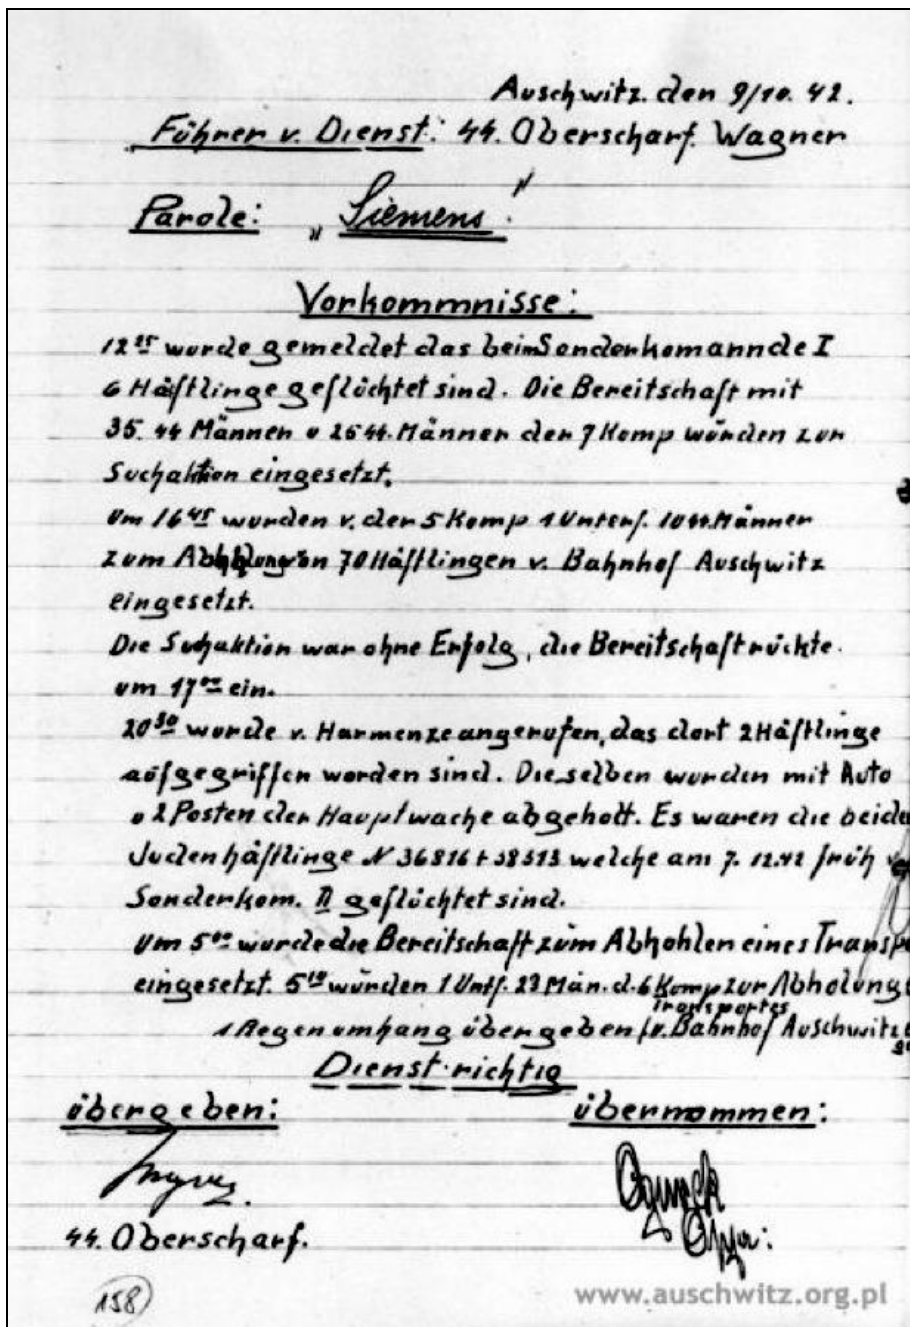 Auschwitz. den 9/10. 42.
Führer v. Dienst: SS. Oberscharf. Wagner
Parole: „Siemens."
Vorkommnisse:
12 25 wurde gemeldet das beim Sonderkomannde I
6 Häftlinge geflüchtet sind. Die Bereitschaft mit
35. SS Männern u 25 SS. Männer der 7 Komp würden zur
Suchaktion eingesetzt.
Um 16 45 wurden v. der 5 Komp 1 Unterf. 10 SS. Männer
zum 70 Häftlingen v. Bahnhof Auschwitz
eingesetzt.
Die Suchaktion war ohne Erfolg, die Bereitschaft rückte.
um 17 00 ein.
20 30 wurde v. Harmenze angerufen, das dort 2 Häftlinge
aufgegriffen worden sind. Die selben wurden mit Auto
u 2 Posten der Hauptwache abgeholt. Es waren die beide
Judenhäftlinge N 36816 + 38313 welche am 7. 12.42 früh
Sonderkom. II geflüchtet sind.
Um 5 00 wurde die Bereitschaft zum Abhohlen eines Transp
eingesetzt. 5 10 würden 1 Untf. 23 Män. d. 6 Komp zur Abholung
Transportes
1 Regenumhang übergeben v. Bahnhof Auschwitz
Dienst richtig
übergeben: übernommen:
SS. Oberscharf.
158
www.auschwitz.org.pl